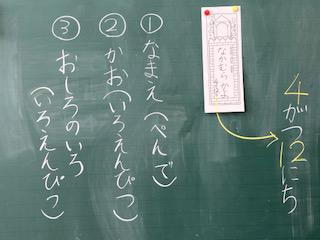 4がつ12にち
なかむらかずお
①なまえ(ぺんで)
②かお(いろえんぴつ)
③おしろのいろ
(いろえんぴつ)